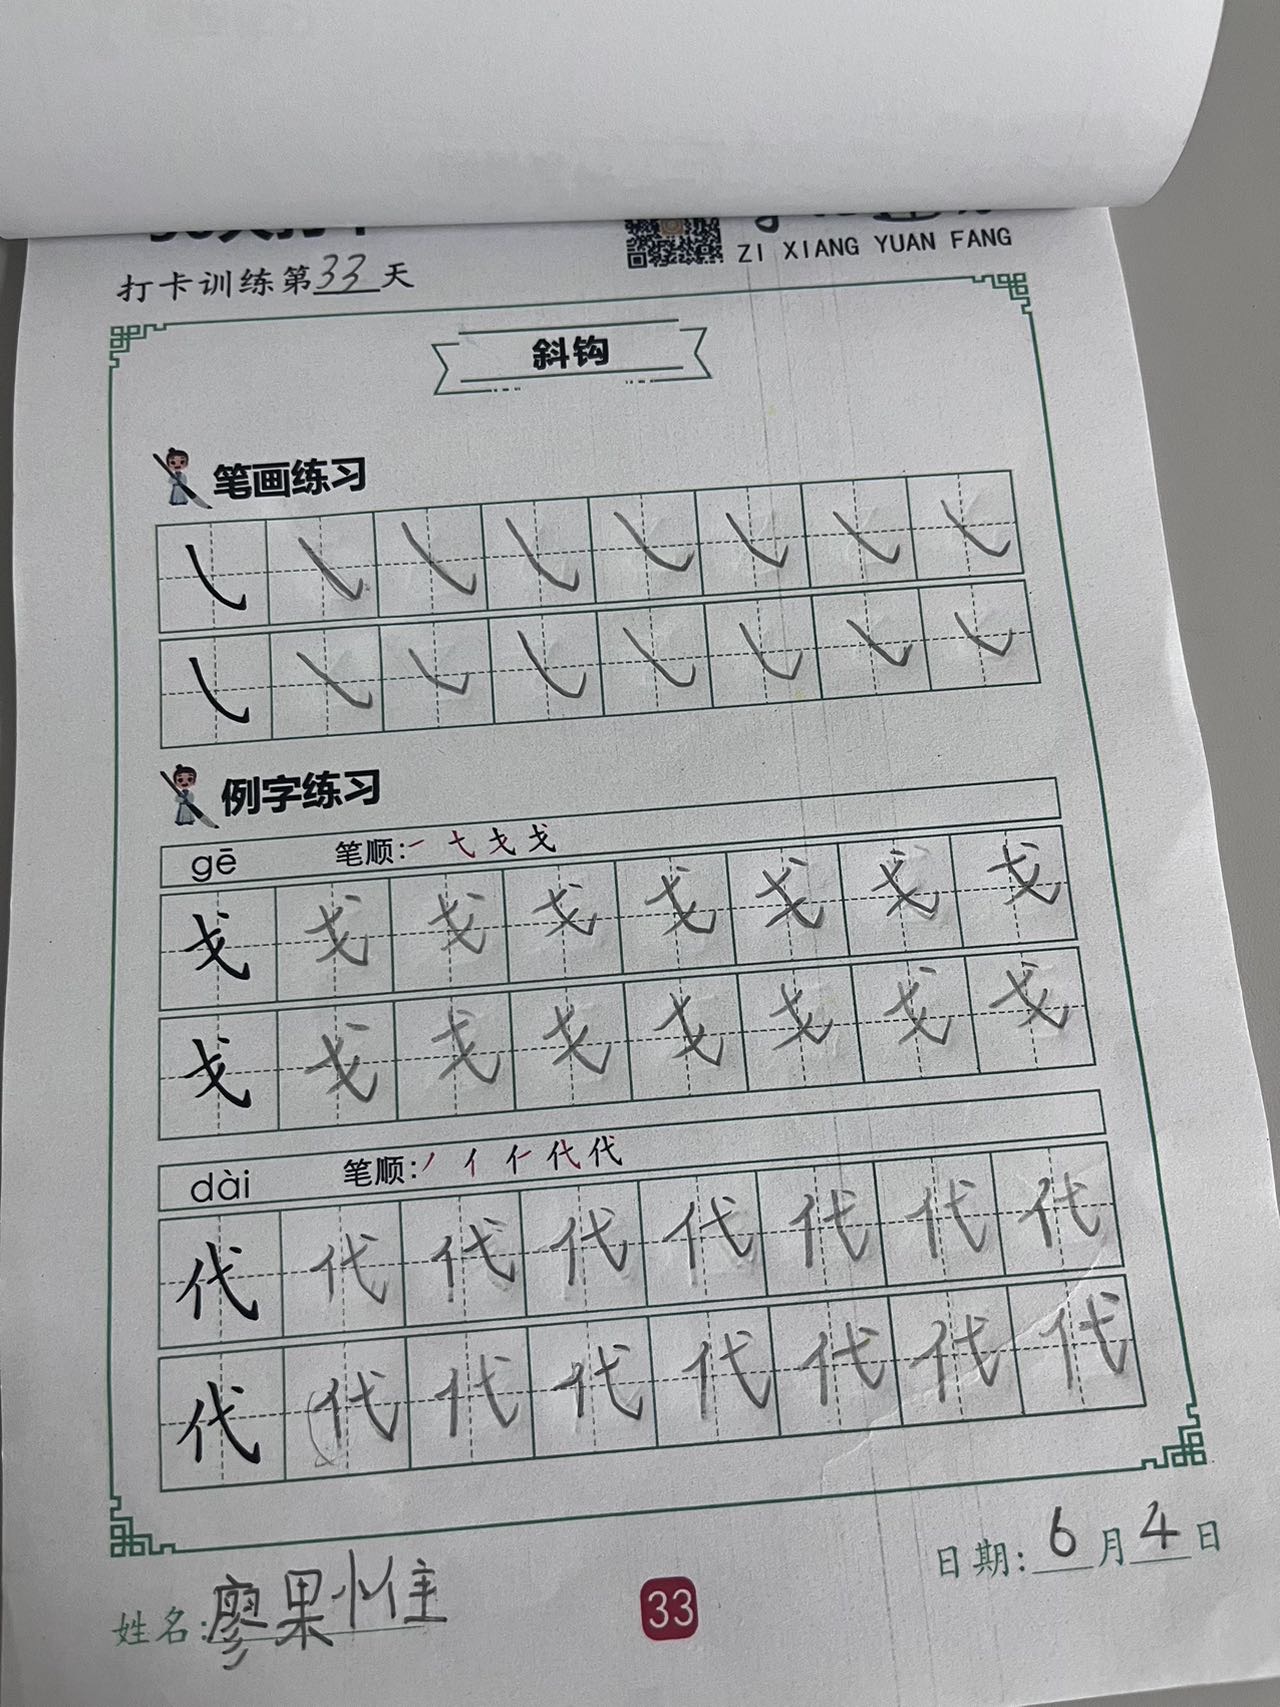 ZI XIANG YUAN FANG
打卡训练第33天
斜钩
笔画练习
例字练习
gē 笔顺:
戈 戈 戈 戈 戈 戈 戈 戈
戈 戈 戈 戈 戈 戈 戈 戈
dài 笔顺:
代 代 代 代 代 代 代 代
代 代 代 代 代 代 代 代
日期: 6月4日
姓名: 廖果惟
33